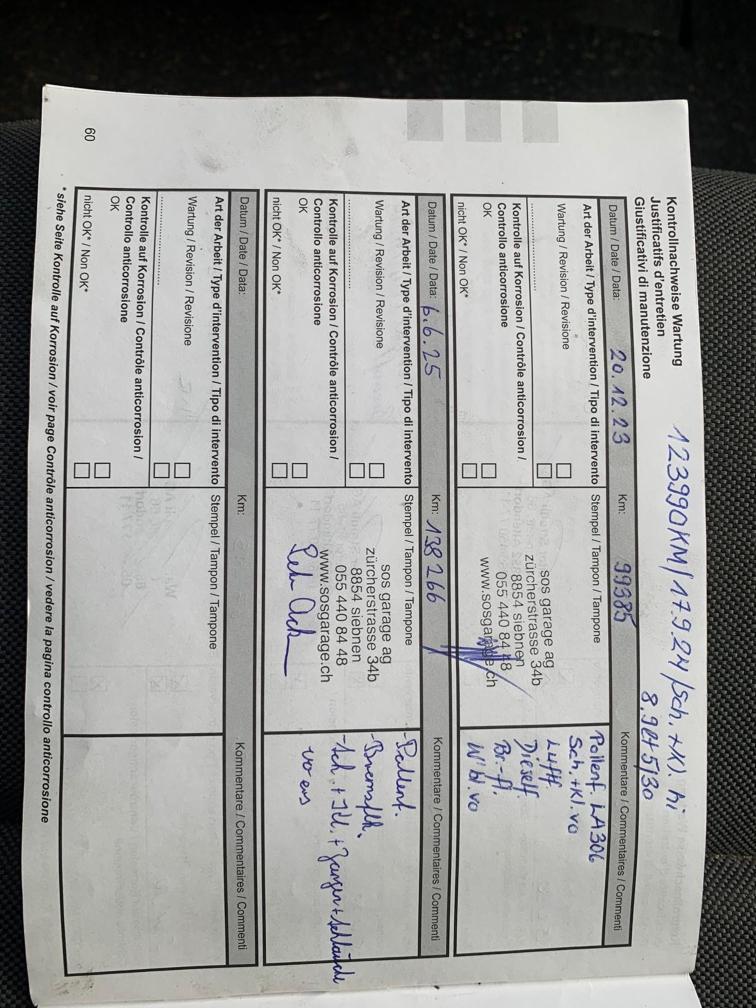 Kontrollnachweise Wartung
Justificatifs d'entretien
Giustificativi di manutenzione
123990KM/17.9.24/Sch. +Kl. hi
8.9lt 5/30
Datum / Date / Data: 20.12.23 Km: 99385 Kommentare / Commentaires / Commenti
Art der Arbeit / Type d'intervention / Tipo di intervento
Wartung / Revision / Revisione
Kontrolle auf Korrosion / Contrôle anticorrosion /
Controllo anticorrosione
OK
nicht OK* / Non OK*
Stempel / Tampon / Tampone
sos garage ag
zürcherstrasse 34b
8854 siebnen
055 440 84 48
www.sosgarage.ch
Pollenf. LA306
Sch.+Kl. vo
Luftf.
Dieself.
Br.-fl.
W'bl. vo
Datum / Date / Data: 6.6.25 Km: 138266 Kommentare / Commentaires / Commenti
Art der Arbeit / Type d'intervention / Tipo di intervento
Wartung / Revision / Revisione
Kontrolle auf Korrosion / Contrôle anticorrosion /
Controllo anticorrosione
OK
nicht OK* / Non OK*
Stempel / Tampon / Tampone
sos garage ag
zürcherstrasse 34b
8854 siebnen
055 440 84 48
www.sosgarage.ch
-Pollenf.
-Bremsfl.
-Sch. + Kl. + Zangen + Schläuche
Datum / Date / Data: Km: Kommentare / Commentaires / Commenti
Art der Arbeit / Type d'intervention / Tipo di intervento
Wartung / Revision / Revisione
Kontrolle auf Korrosion / Contrôle anticorrosion /
Controllo anticorrosione
OK
nicht OK* / Non OK*
Stempel / Tampon / Tampone
* siehe Seite Kontrolle auf Korrosion / voir page Contrôle anticorrosion / vedere la pagina controllo anticorrosione
60